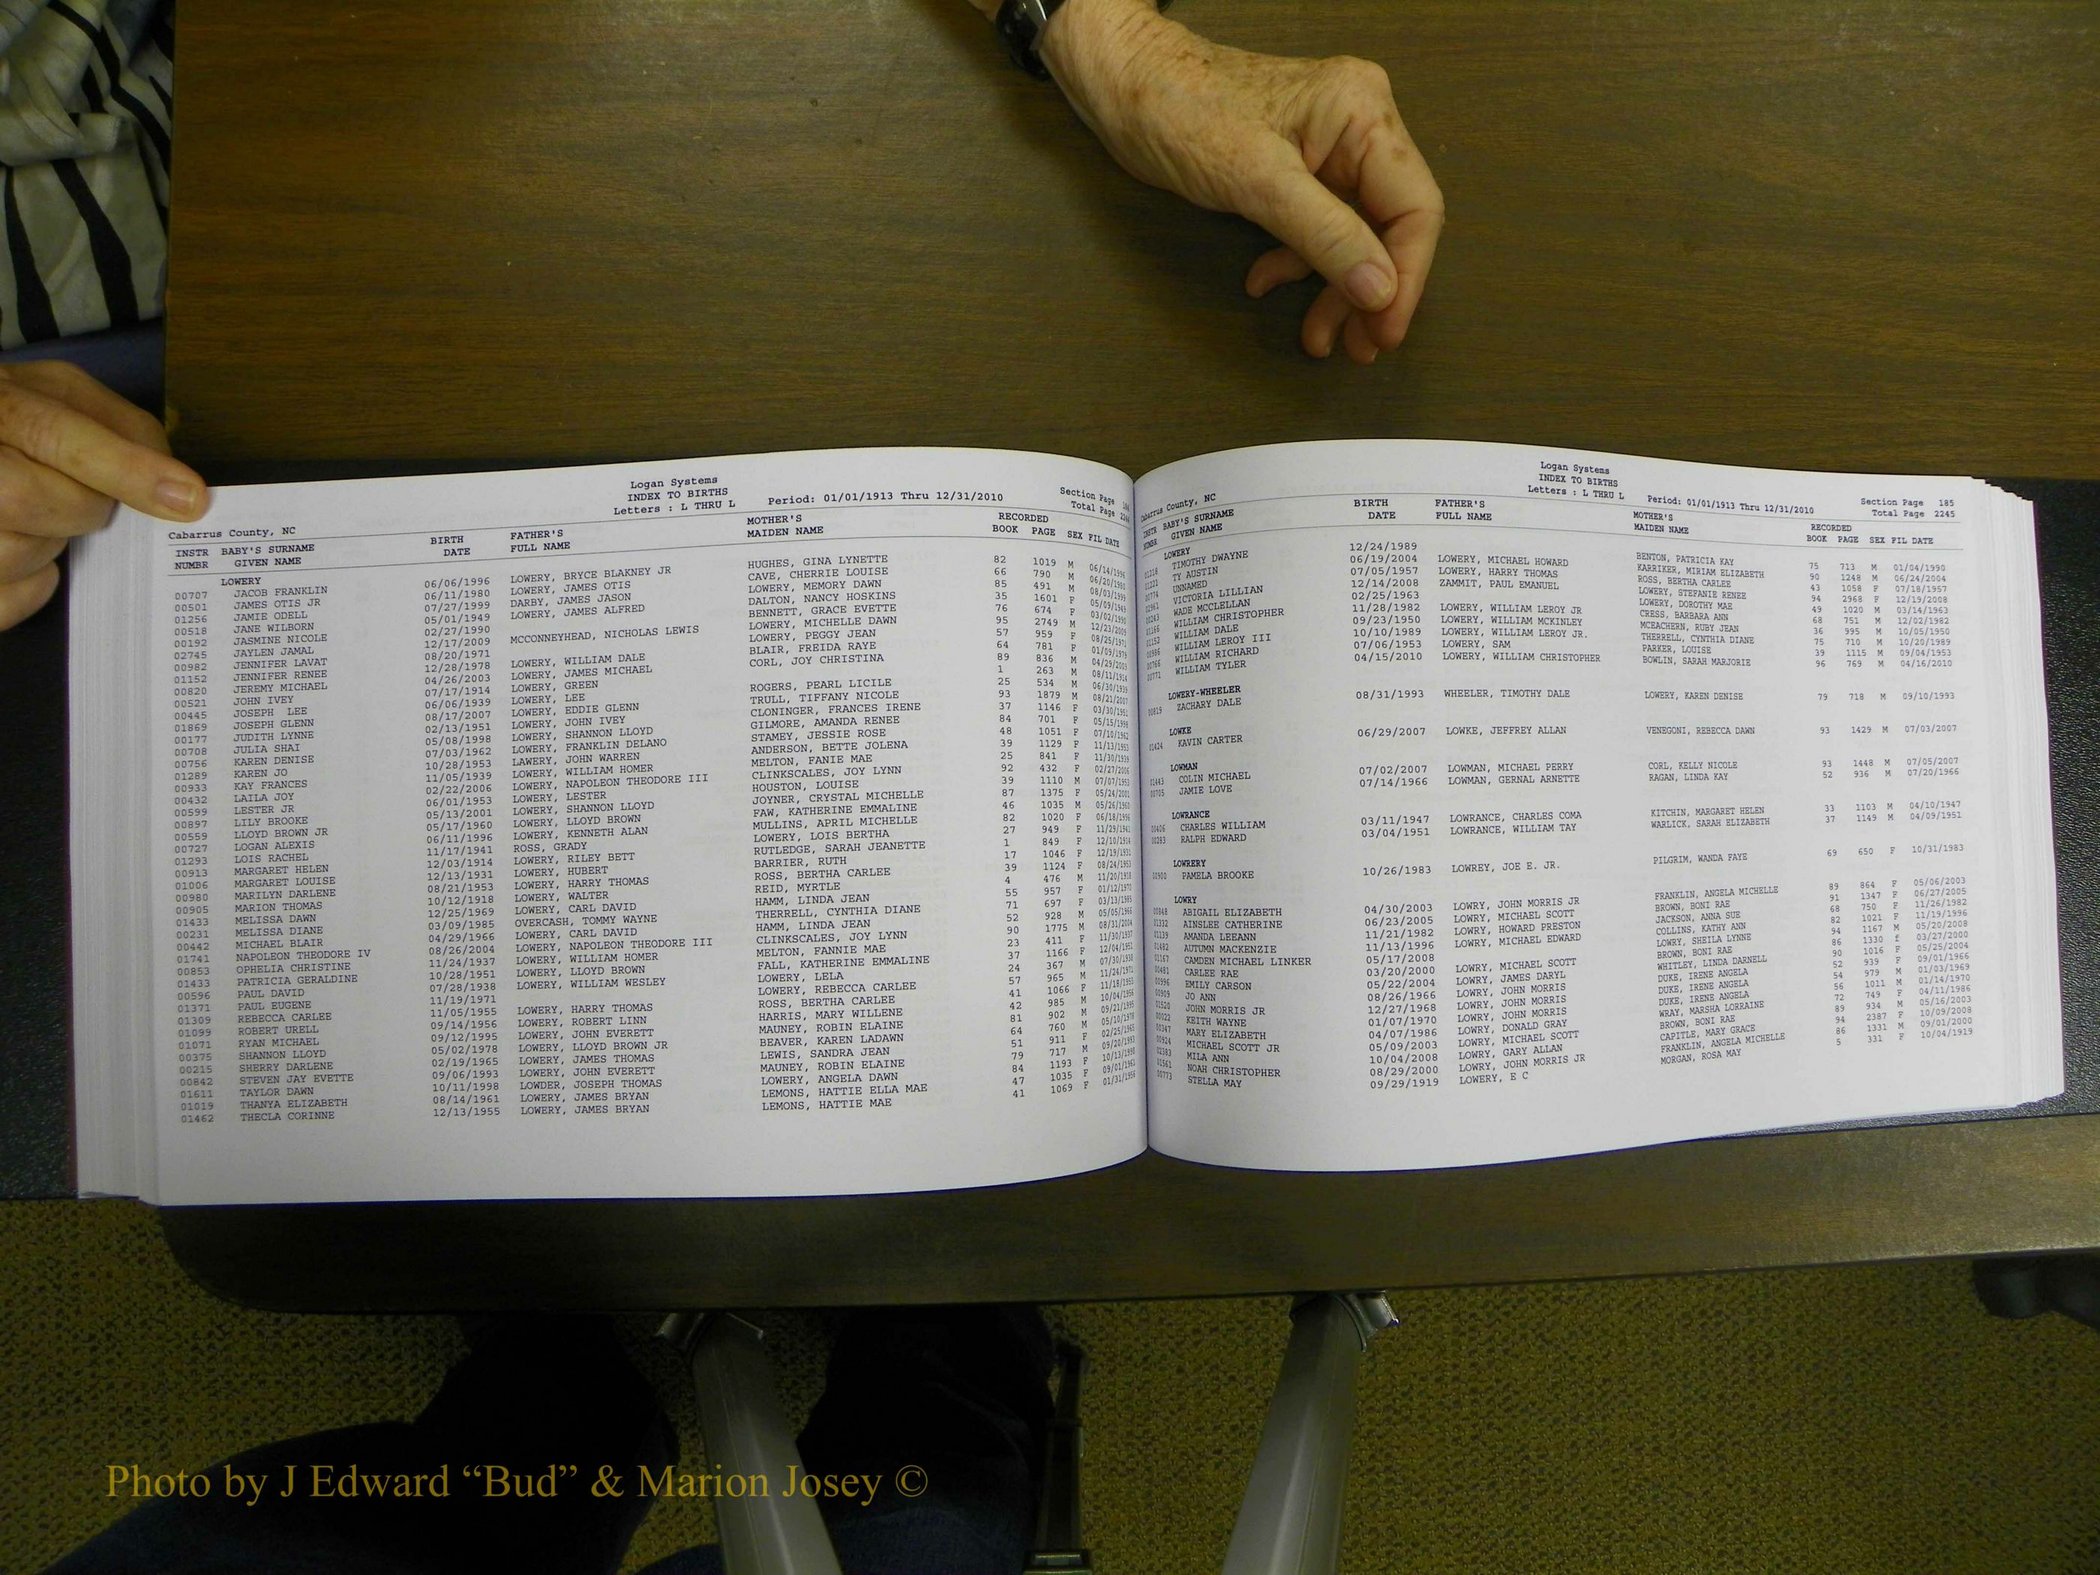 Logan Systems
INDEX TO BIRTHS
Cabarrus County, NC Letters : L THRU L Period: 01/01/1913 Thru 12/31/2010 Section Page
Total Page
INSTR BABY'S SURNAME BIRTH FATHER'S MOTHER'S RECORDED
NUMBR GIVEN NAME DATE FULL NAME MAIDEN NAME BOOK PAGE SEX FIL DATE
LOWERY
00707 JACOB FRANKLIN 06/06/1996 LOWERY, BRYCE BLAKNEY JR HUGHES, GINA LYNETTE 82 1019 M 06/14/1996
00501 JAMES OTIS JR 06/11/1980 LOWERY, JAMES OTIS CAVE, CHERRIE LOUISE 66 790 M 06/20/1980
01256 JAMIE ODELL 07/27/1999 DARBY, JAMES JASON LOWERY, MEMORY DAWN 85 491 M 08/03/1999
00518 JANE WILBORN 05/01/1949 LOWERY, JAMES ALFRED DALTON, NANCY HOSKINS 35 1601 F 05/09/1949
00192 JASMINE NICOLE 02/27/1990 BENNETT, GRACE EVETTE 76 674 F 03/02/1990
02745 JAYLEN JAMAL 12/17/2009 MCCONNEYHEAD, NICHOLAS LEWIS LOWERY, MICHELLE DAWN 95 2749 M 12/23/2009
00982 JENNIFER LAVAT 08/20/1971 LOWERY, PEGGY JEAN 57 959 F 08/25/1971
01152 JENNIFER RENEE 12/28/1978 LOWERY, WILLIAM DALE BLAIR, FREIDA RAYE 64 781 F 01/09/1979
00820 JEREMY MICHAEL 04/26/2003 LOWERY, JAMES MICHAEL CORL, JOY CHRISTINA 89 836 M 04/29/2003
00521 JOHN IVEY 07/17/1914 LOWERY, GREEN 1 263 M 08/11/1914
00445 JOSEPH LEE 06/06/1939 LOWERY, LEE ROGERS, PEARL LICILE 25 534 M 06/30/1939
01869 JOSEPH GLENN 08/17/2007 LOWERY, EDDIE GLENN TRULL, TIFFANY NICOLE 93 1879 M 08/21/2007
00177 JUDITH LYNNE 02/13/1951 LOWERY, JOHN IVEY CLONINGER, FRANCES IRENE 37 1146 F 03/30/1951
00708 JULIA SHAI 05/08/1998 LOWERY, SHANNON LLOYD GILMORE, AMANDA RENEE 84 701 F 05/15/1998
00756 KAREN DENISE 07/03/1962 LOWERY, FRANKLIN DELANO STAMEY, JESSIE ROSE 48 1051 F 07/10/1962
01289 KAREN JO 10/28/1953 LAWERY, JOHN WARREN ANDERSON, BETTE JOLENA 39 1129 F 11/13/1953
00933 KAY FRANCES 11/05/1939 LOWERY, WILLIAM HOMER MELTON, FANIE MAE 25 841 F 11/30/1939
00432 LAILA JOY 02/22/2006 LOWERY, NAPOLEON THEODORE III CLINKSCALES, JOY LYNN 92 432 F 02/27/2006
00599 LESTER JR 06/01/1953 LOWERY, LESTER HOUSTON, LOUISE 39 1110 M 07/07/1953
00897 LILY BROOKE 05/13/2001 LOWERY, SHANNON LLOYD JOYNER, CRYSTAL MICHELLE 87 1375 F 05/24/2001
00559 LLOYD BROWN JR 05/17/1960 LOWERY, LLOYD BROWN FAW, KATHERINE EMMALINE 46 1035 M 05/26/1960
00727 LOGAN ALEXIS 06/11/1996 LOWERY, KENNETH ALAN MULLINS, APRIL MICHELLE 82 1020 F 06/18/1996
01293 LOIS RACHEL 11/17/1941 ROSS, GRADY LOWERY, LOIS BERTHA 27 949 F 11/29/1941
00913 MARGARET HELEN 12/03/1914 LOWERY, RILEY BETT RUTLEDGE, SARAH JEANETTE 1 849 F 12/10/1914
01006 MARGARET LOUISE 12/13/1931 LOWERY, HUBERT BARRIER, RUTH 17 1046 F 12/19/1931
00980 MARILYN DARLENE 08/21/1953 LOWERY, HARRY THOMAS ROSS, BERTHA CARLEE 39 1124 F 08/24/1953
00905 MARION THOMAS 10/12/1918 LOWERY, WALTER REID, MYRTLE 4 476 M 11/20/1918
01433 MELISSA DAWN 12/25/1969 LOWERY, CARL DAVID HAMM, LINDA JEAN 55 957 F 01/12/1970
00231 MELISSA DIANE 03/09/1985 OVERCASH, TOMMY WAYNE THERRELL, CYNTHIA DIANE 71 697 F 03/13/1985
00442 MICHAEL BLAIR 04/29/1966 LOWERY, CARL DAVID HAMM, LINDA JEAN 52 928 M 05/05/1966
01741 NAPOLEON THEODORE IV 08/26/2004 LOWERY, NAPOLEON THEODORE III CLINKSCALES, JOY LYNN 90 1775 M 08/31/2004
00853 OPHELIA CHRISTINE 11/24/1937 LOWERY, WILLIAM HOMER MELTON, FANNIE MAE 23 411 F 11/30/1937
01433 PATRICIA GERALDINE 10/28/1951 LOWERY, LLOYD BROWN FALL, KATHERINE EMMALINE 37 1166 F 12/04/1951
00596 PAUL DAVID 07/28/1938 LOWERY, WILLIAM WESLEY LOWERY, LELA 24 367 M 07/30/1938
01371 PAUL EUGENE 11/19/1971 LOWERY, REBECCA CARLEE 57 965 M 11/24/1971
01309 REBECCA CARLEE 11/05/1955 LOWERY, HARRY THOMAS ROSS, BERTHA CARLEE 41 1066 F 11/18/1955
01099 ROBERT URELL 09/14/1956 LOWERY, ROBERT LINN HARRIS, MARY WILLENE 42 985 M 10/04/1956
01071 RYAN MICHAEL 09/12/1995 LOWERY, JOHN EVERETT MAUNEY, ROBIN ELAINE 81 902 M 09/21/1995
00375 SHANNON LLOYD 05/02/1978 LOWERY, LLOYD BROWN JR BEAVER, KAREN LADAWN 64 760 M 05/10/1978
00215 SHERRY DARLENE 02/19/1965 LOWERY, JAMES THOMAS LEWIS, SANDRA JEAN 51 911 F 02/25/1965
00842 STEVEN JAY EVETTE 09/06/1993 LOWERY, JOHN EVERETT MAUNEY, ROBIN ELAINE 79 717 M 09/20/1993
01611 TAYLOR DAWN 10/11/1998 LOWDER, JOSEPH THOMAS LOWERY, ANGELA DAWN 84 1193 F 10/13/1998
01019 THANYA ELIZABETH 08/14/1961 LOWERY, JAMES BRYAN LEMONS, HATTIE ELLA MAE 47 1035 F 09/01/1961
01462 THECLA CORINNE 12/13/1955 LOWERY, JAMES BRYAN LEMONS, HATTIE MAE 41 1069 F 01/31/1956
Logan Systems
INDEX TO BIRTHS
Cabarrus County, NC Letters : L THRU L Period: 01/01/1913 Thru 12/31/2010 Section Page 185
Total Page 2245
INSTR BABY'S SURNAME BIRTH FATHER'S MOTHER'S RECORDED
NUMBR GIVEN NAME DATE FULL NAME MAIDEN NAME BOOK PAGE SEX FIL DATE
LOWERY
01218 TIMOTHY DWAYNE 12/24/1989 BENTON, PATRICIA KAY 75 713 M 01/04/1990
01221 TY AUSTIN 06/19/2004 LOWERY, MICHAEL HOWARD KARRIKER, MIRIAM ELIZABETH 90 1248 M 06/24/2004
00774 UNNAMED 07/05/1957 LOWERY, HARRY THOMAS ROSS, BERTHA CARLEE 43 1058 F 07/18/1957
02961 VICTORIA LILLIAN 12/14/2008 ZAMMIT, PAUL EMANUEL LOWERY, STEFANIE RENEE 94 2968 F 12/19/2008
00243 WADE MCCLELLAN 02/25/1963 LOWERY, DOROTHY MAE 49 1020 M 03/14/1963
01166 WILLIAM CHRISTOPHER 11/28/1982 LOWERY, WILLIAM LEROY JR CRESS, BARBARA ANN 68 751 M 12/02/1982
01152 WILLIAM DALE 09/23/1950 LOWERY, WILLIAM MCKINLEY MCEACHERN, RUBY JEAN 36 995 M 10/05/1950
00986 WILLIAM LEROY III 10/10/1989 LOWERY, WILLIAM LEROY JR. THERRELL, CYNTHIA DIANE 75 710 M 10/20/1989
00766 WILLIAM RICHARD 07/06/1953 LOWERY, SAM PARKER, LOUISE 39 1115 M 09/04/1953
00771 WILLIAM TYLER 04/15/2010 LOWERY, WILLIAM CHRISTOPHER BOWLIN, SARAH MARJORIE 96 769 M 04/16/2010
LOWERY-WHEELER
00819 ZACHARY DALE 08/31/1993 WHEELER, TIMOTHY DALE LOWERY, KAREN DENISE 79 718 M 09/10/1993
LOWKE
01424 KAVIN CARTER 06/29/2007 LOWKE, JEFFREY ALLAN VENEGONI, REBECCA DAWN 93 1429 M 07/03/2007
LOWMAN
01443 COLIN MICHAEL 07/02/2007 LOWMAN, MICHAEL PERRY CORL, KELLY NICOLE 93 1448 M 07/05/2007
00705 JAMIE LOVE 07/14/1966 LOWMAN, GERNAL ARNETTE RAGAN, LINDA KAY 52 936 M 07/20/1966
LOWRANCE
00406 CHARLES WILLIAM 03/11/1947 LOWRANCE, CHARLES COMA KITCHIN, MARGARET HELEN 33 1103 M 04/10/1947
00283 RALPH EDWARD 03/04/1951 LOWRANCE, WILLIAM TAY WARLICK, SARAH ELIZABETH 37 1149 M 04/09/1951
LOWRERY
00900 PAMELA BROOKE 10/26/1983 LOWREY, JOE E. JR. PILGRIM, WANDA FAYE 69 650 F 10/31/1983
LOWRY
00848 ABIGAIL ELIZABETH 04/30/2003 LOWRY, JOHN MORRIS JR FRANKLIN, ANGELA MICHELLE 89 864 F 05/06/2003
01332 AINSLEE CATHERINE 06/23/2005 LOWRY, MICHAEL SCOTT BROWN, BONI RAE 91 1347 F 06/27/2005
01139 AMANDA LEEANN 11/21/1982 LOWRY, HOWARD PRESTON JACKSON, ANNA SUE 68 750 F 11/26/1982
01482 AUTUMN MACKENZIE 11/13/1996 LOWRY, MICHAEL EDWARD COLLINS, KATHY ANN 82 1021 F 11/19/1996
01167 CAMDEN MICHAEL LINKER 05/17/2008 LOWRY, SHEILA LYNNE 94 1167 M 05/20/2008
00481 CARLEE RAE 03/20/2000 LOWRY, MICHAEL SCOTT BROWN, BONI RAE 86 1330 f 03/27/2000
00996 EMILY CARSON 05/22/2004 LOWRY, JAMES DARYL WHITLEY, LINDA DARNELL 90 1016 F 05/25/2004
00909 JO ANN 08/26/1966 LOWRY, JOHN MORRIS DUKE, IRENE ANGELA 52 939 F 09/01/1966
01520 JOHN MORRIS JR 12/27/1968 LOWRY, JOHN MORRIS DUKE, IRENE ANGELA 54 979 M 01/03/1969
00022 KEITH WAYNE 01/07/1970 LOWRY, JOHN MORRIS DUKE, IRENE ANGELA 56 1011 M 01/14/1970
00347 MARY ELIZABETH 04/07/1986 LOWRY, DONALD GRAY WRAY, MARSHA LORRAINE 72 749 F 04/11/1986
00924 MICHAEL SCOTT JR 05/09/2003 LOWRY, MICHAEL SCOTT BROWN, BONI RAE 89 934 M 05/16/2003
02383 MILA ANN 10/04/2008 LOWRY, GARY ALLAN CAPITLE, MARY GRACE 94 2387 F 10/09/2008
01561 NOAH CHRISTOPHER 08/29/2000 LOWRY, JOHN MORRIS JR FRANKLIN, ANGELA MICHELLE 86 1331 M 09/01/2000
00773 STELLA MAY 09/29/1919 LOWERY, E C MORGAN, ROSA MAY 5 331 F 10/04/1919
Photo by J Edward “Bud” & Marion Josey ©